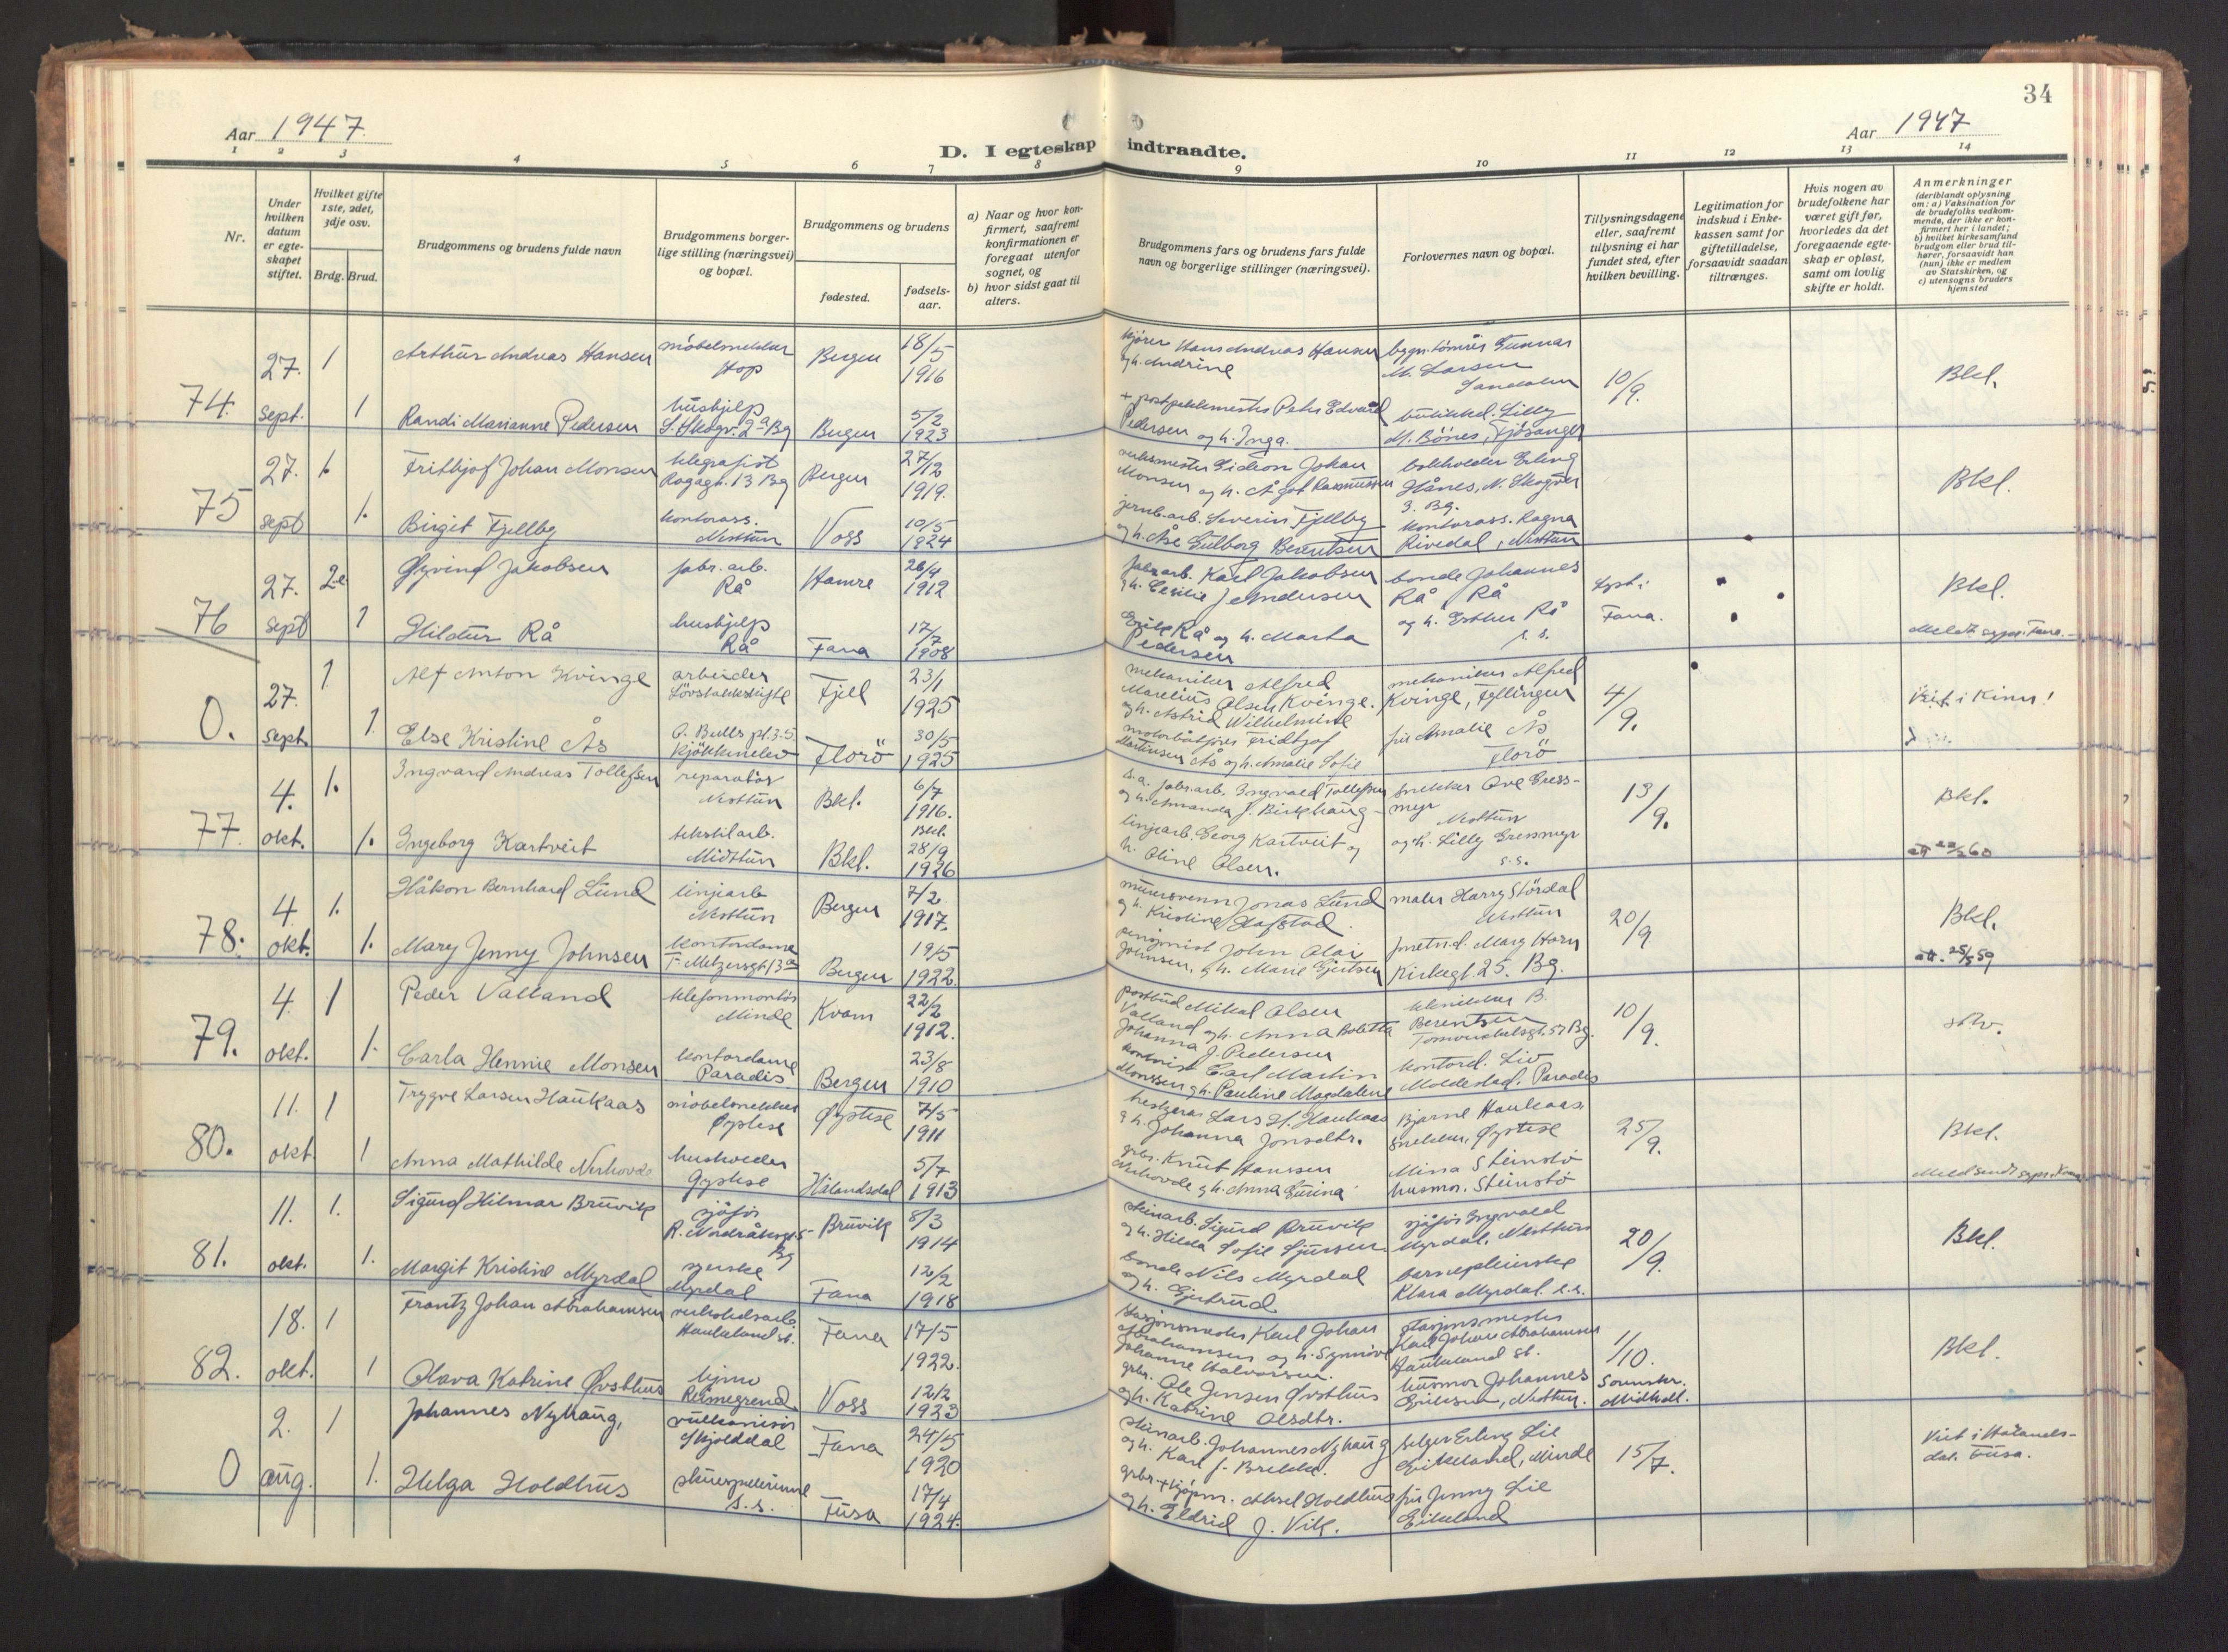 34
Aar 1947
Aar 1947
D. I egteskap indtraadte.
1 2 3 4 5 6 7 8 9 10 11 12 13 14
Nr.
Under hvilken datum er egteskapet stiftet.
Hvilket gifte 1ste, 2det, 3dje osv.
Brdg. Brud.
Brudgommens og brudens fulde navn
Brudgommens borgerlige stilling (næringsvei) og bopæl.
Brudgommens og brudens
fødested.
fødselsaar.
a) Naar og hvor konfirmert, saafremt konfirmationen er foregaat utenfor sognet, og
b) hvor sidst gaat til alters.
Brudgommens fars og brudens fars fulde navn og borgerlige stillinger (næringsvei).
Forlovernes navn og bopæl.
Tillysningsdagene eller, saafremt tillysning ei har fundet sted, efter hvilken bevilling.
Legitimation for indskud i Enkekassen samt for giftetilladelse, forsaavidt saadan tiltrænges.
Hvis nogen av brudefolkene har været gift før, hvorledes da det foregaaende egteskap er opløst, samt om lovlig skifte er holdt.
Anmerkninger
(deriblandt oplysning om: a) Vaksination for de brudefolks vedkommende, der ikke er konfirmert her i landet; b) hvilket kirkesamfund brudgom eller brud tilhører, forsaavidt han (hun) ikke er medlem av Statskirken, og c) utensogns bruders hjemsted
74. 27. sept. 1
Arthur Andreas Hansen
Hop
Bergen
18/5 1916
Hans Andreas Hansen
og h. Andrine
Gunnar M. Larsen
10/9.
Bkl.
1 Randi Marianne Pedersen
hushjelp
Bergen
5/2 1923
Peter Edvard Pedersen og h. Inga.
Lilly M. Bönes, Fjösanger
75 27. sept 1.
Frithjof Johan Monsen
telegrafist
Bergen
27/12 1919.
Gideon Johan Monsen
bokholder Erling Hånes, N. Skogvei 3. Bg.
Bkl.
1. Birgit Fjellby
kontorass. Nesttun
Voss
10/5 1924
jernb.arb. Severin Fjellby
kontorass. Ragna Rivedal, Nesttun
76 27. sept 2
Øyvind Jakobsen
fabr. arb. Rå
Hamre
26/4 1912
Karl Jakobsen
bonde Johannes Rå Rå
Lyst i Fana.
Bkl.
1 Hildur Rå
hushjelp Rå
Fana
17/7 1908
Erik Rå og h. Marta Pedersen
og h. Esther Rå s. s.
0. 27. sept. 1
Alf Anton Kvinge
arbeider
Fjell
23/1 1925
mekaniker Alfred Marelius Olsen Kvinge.
og h. Astrid Wilhelmine
mekaniker Alfred Kvinge, Fyllingen
4/9.
Viet i Kinn!
1 Else Kristine Ås
Florö
30/5 1925
Fridtjof Martinsen Ås og h. Amalie Sofie
fru Amalie Ås Florö
77. 4. okt. 1.
Ingvard Andreas Tollefsen
reparatör Nesttun
Bkl.
6/7 1916.
fabr.arb. Ingvald Tollefsen
og h. Amanda J. Birkhaug
snekker Ove Gressmyr Nesttun
13/9.
Bkl.
1. Ingeborg Kartveit
tekstilarb. Midttun
Bkl.
28/9 1926
linjearb. Georg Kartveit og h. Oline Olsen.
og h. Lilly Gressmyr s.s.
78. 4. okt. 1.
Håkon Bernhard Lund
linjearb. Nesttun
Bergen
7/2 1917.
murersvenn Jonas Lund
og h. Kristine Hafstad.
maler Harry Stördal Nesttun
20/9
Bkl.
1. Mary Jenny Johnsen
kontordame
Bergen
19/5 1922.
pensjonist John Olai Johnsen, og h. Marie Gjertsen
Mary Horn Kirkegt. 25. Bg.
att. 25/5 59
79. 4. okt. 1
Peder Valland
telefonmontör Minde
Kvam
22/2 1912.
postbud Mikal Olsen Valland og h. Anna Bolette Johanna J. Pedersen
B. Berentsen
10/9.
1. Carla Hennie Monsen
kontordame Paradis
Bergen
23/8 1910
Carl Martin Monssen og h. Pauline Magdalene
kontord. Liv Moldestad. Paradis
80. 11. okt. 1
Trygve Larsen Haukaas
möbelsnekker Øystese
Øystese
7/5 1911
Lars H. Haukaas og h. Johanna Jonsdtr.
Bjarne Haukaas snekker, Øystese
25/9.
Bkl.
1 Anna Mathilde Nerhovde
Øystese
Hålandsdal
5/7 1913
grbr. Knut Hanssen Nerhovde og h. Anna Eurina
Mina Steinstö husmor. Steinstö
81. 11. okt. 1.
Sigurd Hilmar Bruvik
sjåför
Bruvik
8/3 1914
Sigurd Bruvik og h. Hilda Sofie Sjursen.
sjåför Ingvald Myrdal. Nesttun
20/9.
Bkl.
1. Margit Kristine Myrdal
syerske Myrdal
Fana
12/2 1918
bonde Nils Myrdal og h. Gjertrud
barnepleierske Klara Myrdal. s.s.
82. 18. okt. 1
Frantz Johan Abrahamsen
verkstedsarb. Haukeland st.
Fana
17/5 1922.
stasjonsmester Karl Johan Abrahamsen og h. Synnöve Johanne Halvorsen.
stasjonsmester Karl Johan Abrahamsen Haukeland st.
1/10.
Bkl.
1 Olava Katrine Øvsthus
Reimegrend
Voss
12/2 1923
grbr. Ole Jensen Øvsthus og h. Katrine Olsdtr.
husmor Johannes Eriksen, Nesttun.
0 2. aug. 1
Johannes Nyhaug,
vulkanisör Skjolddal
Fana
24/5 1920
steinarb. Johannes Nyhaug
og h. Kari J. Brekke.
selger Erling Lie Eikeland, Minde
15/7.
Viet i Hålandsdal. Fusa.
1. Helga Holdhus
s. s.
Fusa
17/4 1924.
grbr. + kjöpm. Aksel Holdhus og h. Eldrid J. Vik.
fru Jenny Lie Eikeland